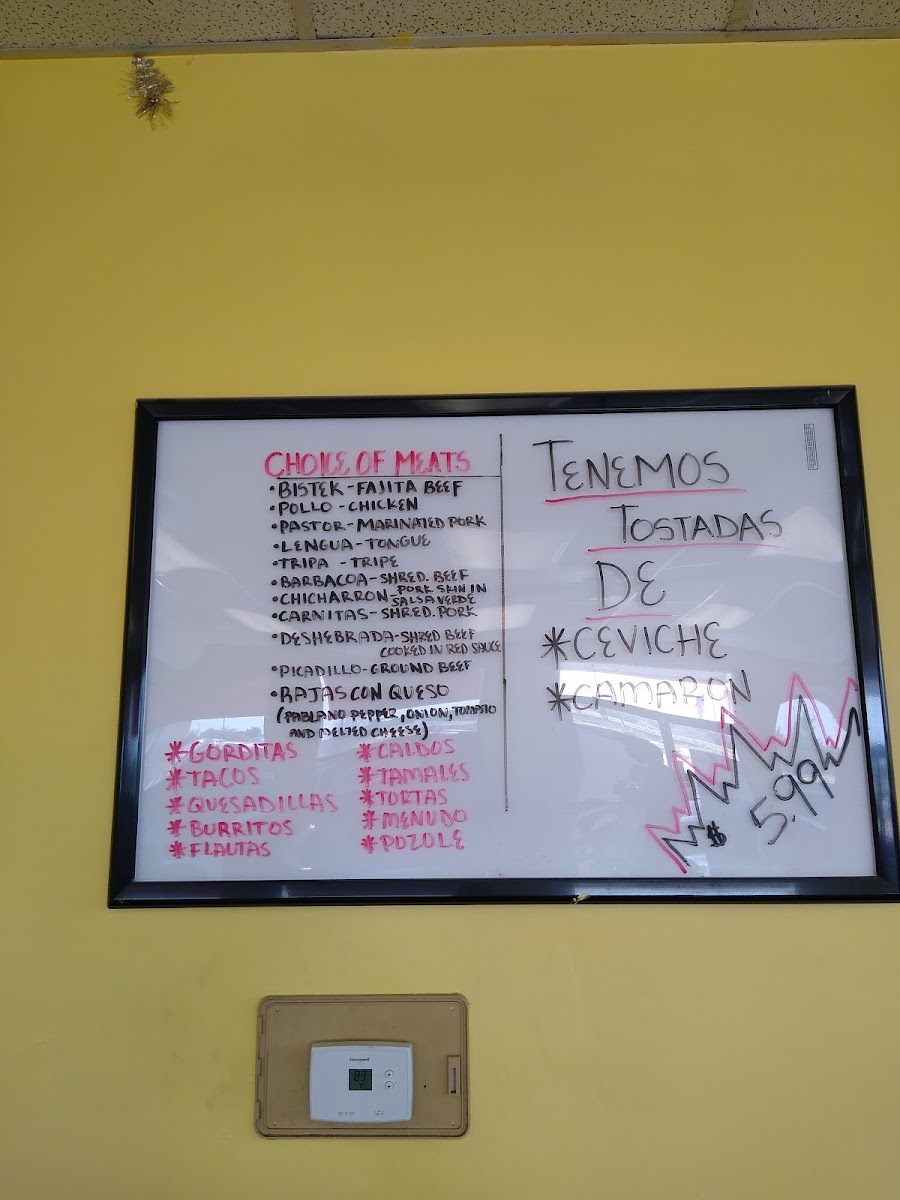 CHOICE OF MEATS
•BISTEK-FAJITA BEEF
•POLLO-CHICKEN
•PASTOR-MARINATED PORK
•LENGUA-TONGUE
•TRIPA -TRIPE
•BARBACOA-SHRED. BEEF
•CHICHARRON-PORK SKIN IN
SALSA VERDE
•CARNITAS-SHRED. PORK
•DESHEBRADA-SHRED BEEF
COOKED IN RED SAUCE
•PICADILLO-GROUND BEEF
•RAJAS CON QUESO
(PABLANO PEPPER, ONION, TOMATO
AND MELTED CHEESE)
*GORDITAS
*TACOS
*QUESADILLAS
*BURRITOS
*FLAUTAS
*CALDOS
*TAMALES
*TORTAS
*MENUDO
*POZOLE
TENEMOS
TOSTADAS
DE
*CEVICHE
*CAMARON
$ 5.99
Honeywell
83